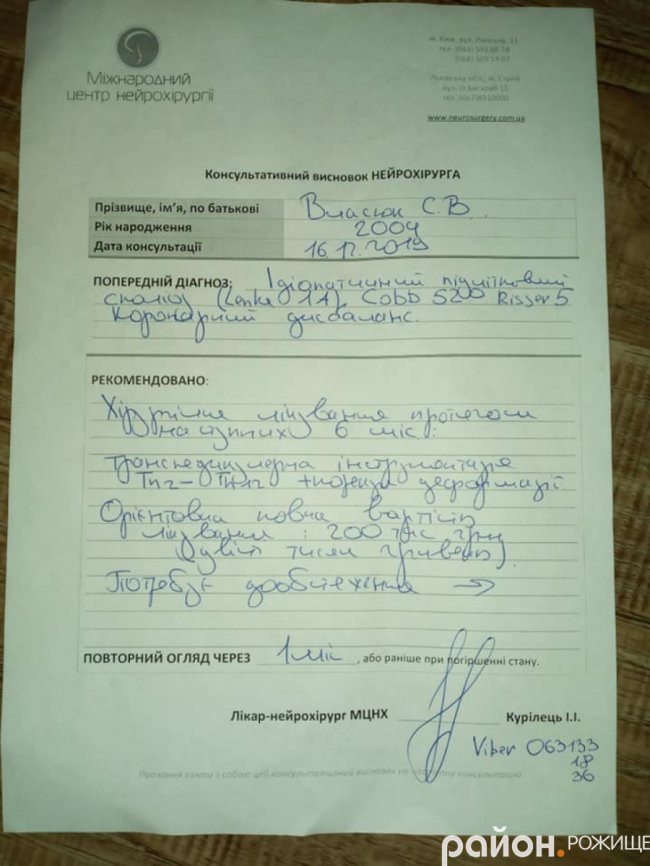 Міжнародний
центр нейрохірургії
м. Київ, вул. Липська, 11
www.neurosurgery.com.ua
Консультативний висновок НЕЙРОХІРУРГА
Прізвище, ім'я, по батькові Власюк С.В
Рік народження 2004
Дата консультації 16.12.2019
ПОПЕРЕДНІЙ ДІАГНОЗ: Ідіопатичний підлітковий
сколіоз (Lenke 1A), Cobb 52° Risser 5
Коронарний дисбаланс.
РЕКОМЕНДОВАНО:
Хірургічне лікування протягом
наступних 6 міс:
Транспедикулярна інструментація
корекція деформації
Орієнтовна повна вартість
лікування: 200 тис грн
(двісті тисяч гривень).
Потребує дообстеження →
ПОВТОРНИЙ ОГЛЯД ЧЕРЕЗ 1 міс, або раніше при погіршенні стану.
Лікар-нейрохірург МЦНХ Курілець І.І.
Viber 063133
18
36
Прохання взяти з собою цей консультаційний висновок на наступну консультацію
район.РОЖИЩЕ